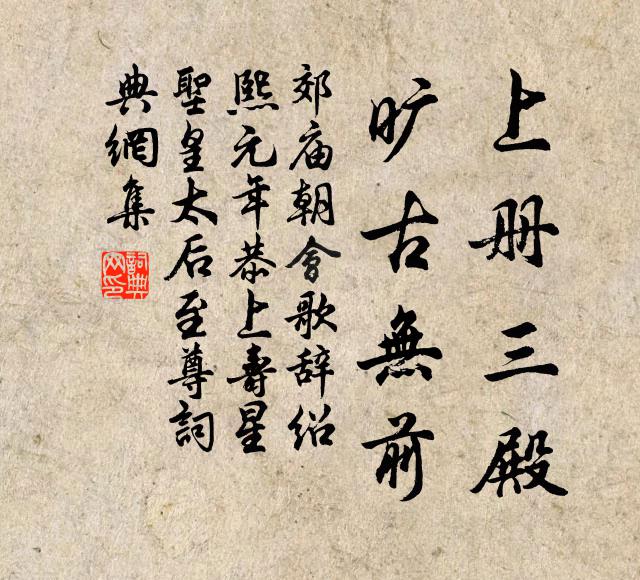 上册三殿
旷古無前
郊庙朝會歌辞绍
熙元年恭上壽星
聖皇太后至尊詞
典網集
詞典網印